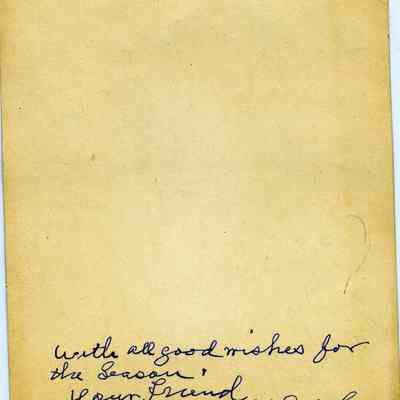 with all good wishes for
the Season.
Your Friend